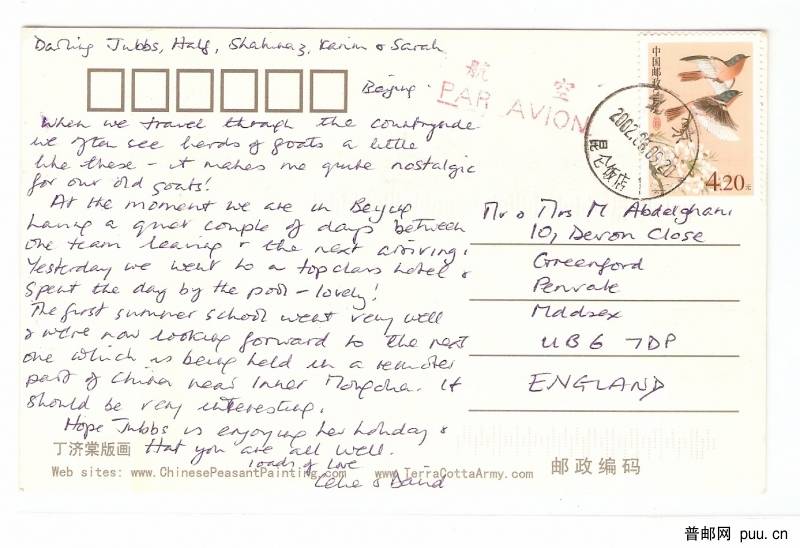 Darling Jubbs, Haly, Shahnaz, Karim & Sarah
Beijing.
When we travel through the countryside
we often see herds of goats a little
like these - it makes me quite nostalgic
for our old goats!
At the moment we are in Beijing
having a quiet couple of days between
one team leaving & the next arriving.
Yesterday we went to a top class hotel &
spent the day by the pool - lovely!
The first summer school went very well
& we're now looking forward to the next
one which is being held in a remoter
part of China near Inner Mongolia. It
should be very interesting.
Hope Jubbs is enjoying her holiday &
that you are all well.
loads of love
& David
航 空
PAR AVION
中国邮政
4.20元
2002.08.05.20
昆仑饭店
Mr & Mrs M Abdelghani
10, Devon Close
Greenford
Perivale
Middsex
UB6 7DP
ENGLAND
丁济棠版画
Web sites: www.ChinesePeasantPainting.com www.TerraCottaArmy.com
邮政编码
普邮网 puu.cn